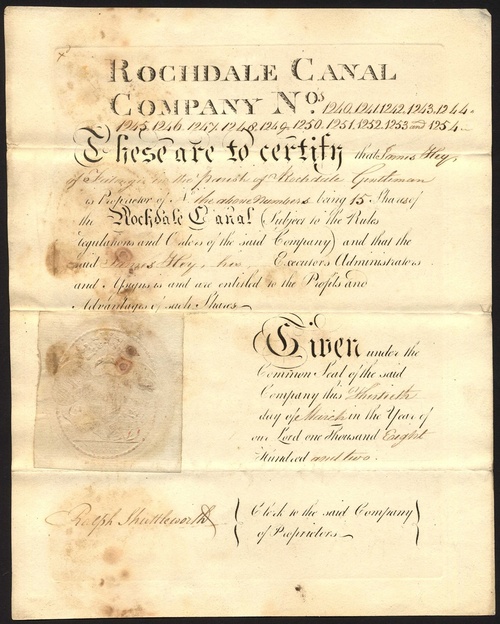 Rochdale Canal
Company Nos. 1240, 1241, 1242, 1243, 1244,
1245, 1246, 1247, 1248, 1249, 1250, 1251, 1252, 1253 and 1254
These are to certify that James Hoy,
of in the parish of Rochdale Gentleman
is Proprietor of N the above numbers being 15 Shares of
the Rochdale Canal (Subject to the Rules
regulations and Orders of the said Company) and that the
said James Hoy, his Executors Administrators
and Assigns is and are entitled to the Profits and
Advantages of such Shares
Given under the
Common Seal of the said
Company this Thirtieth
day of March in the Year of
our Lord one Thousand Eight
Hundred and two.
Ralph Shuttleworth
Clerk to the said Company
of Proprietors